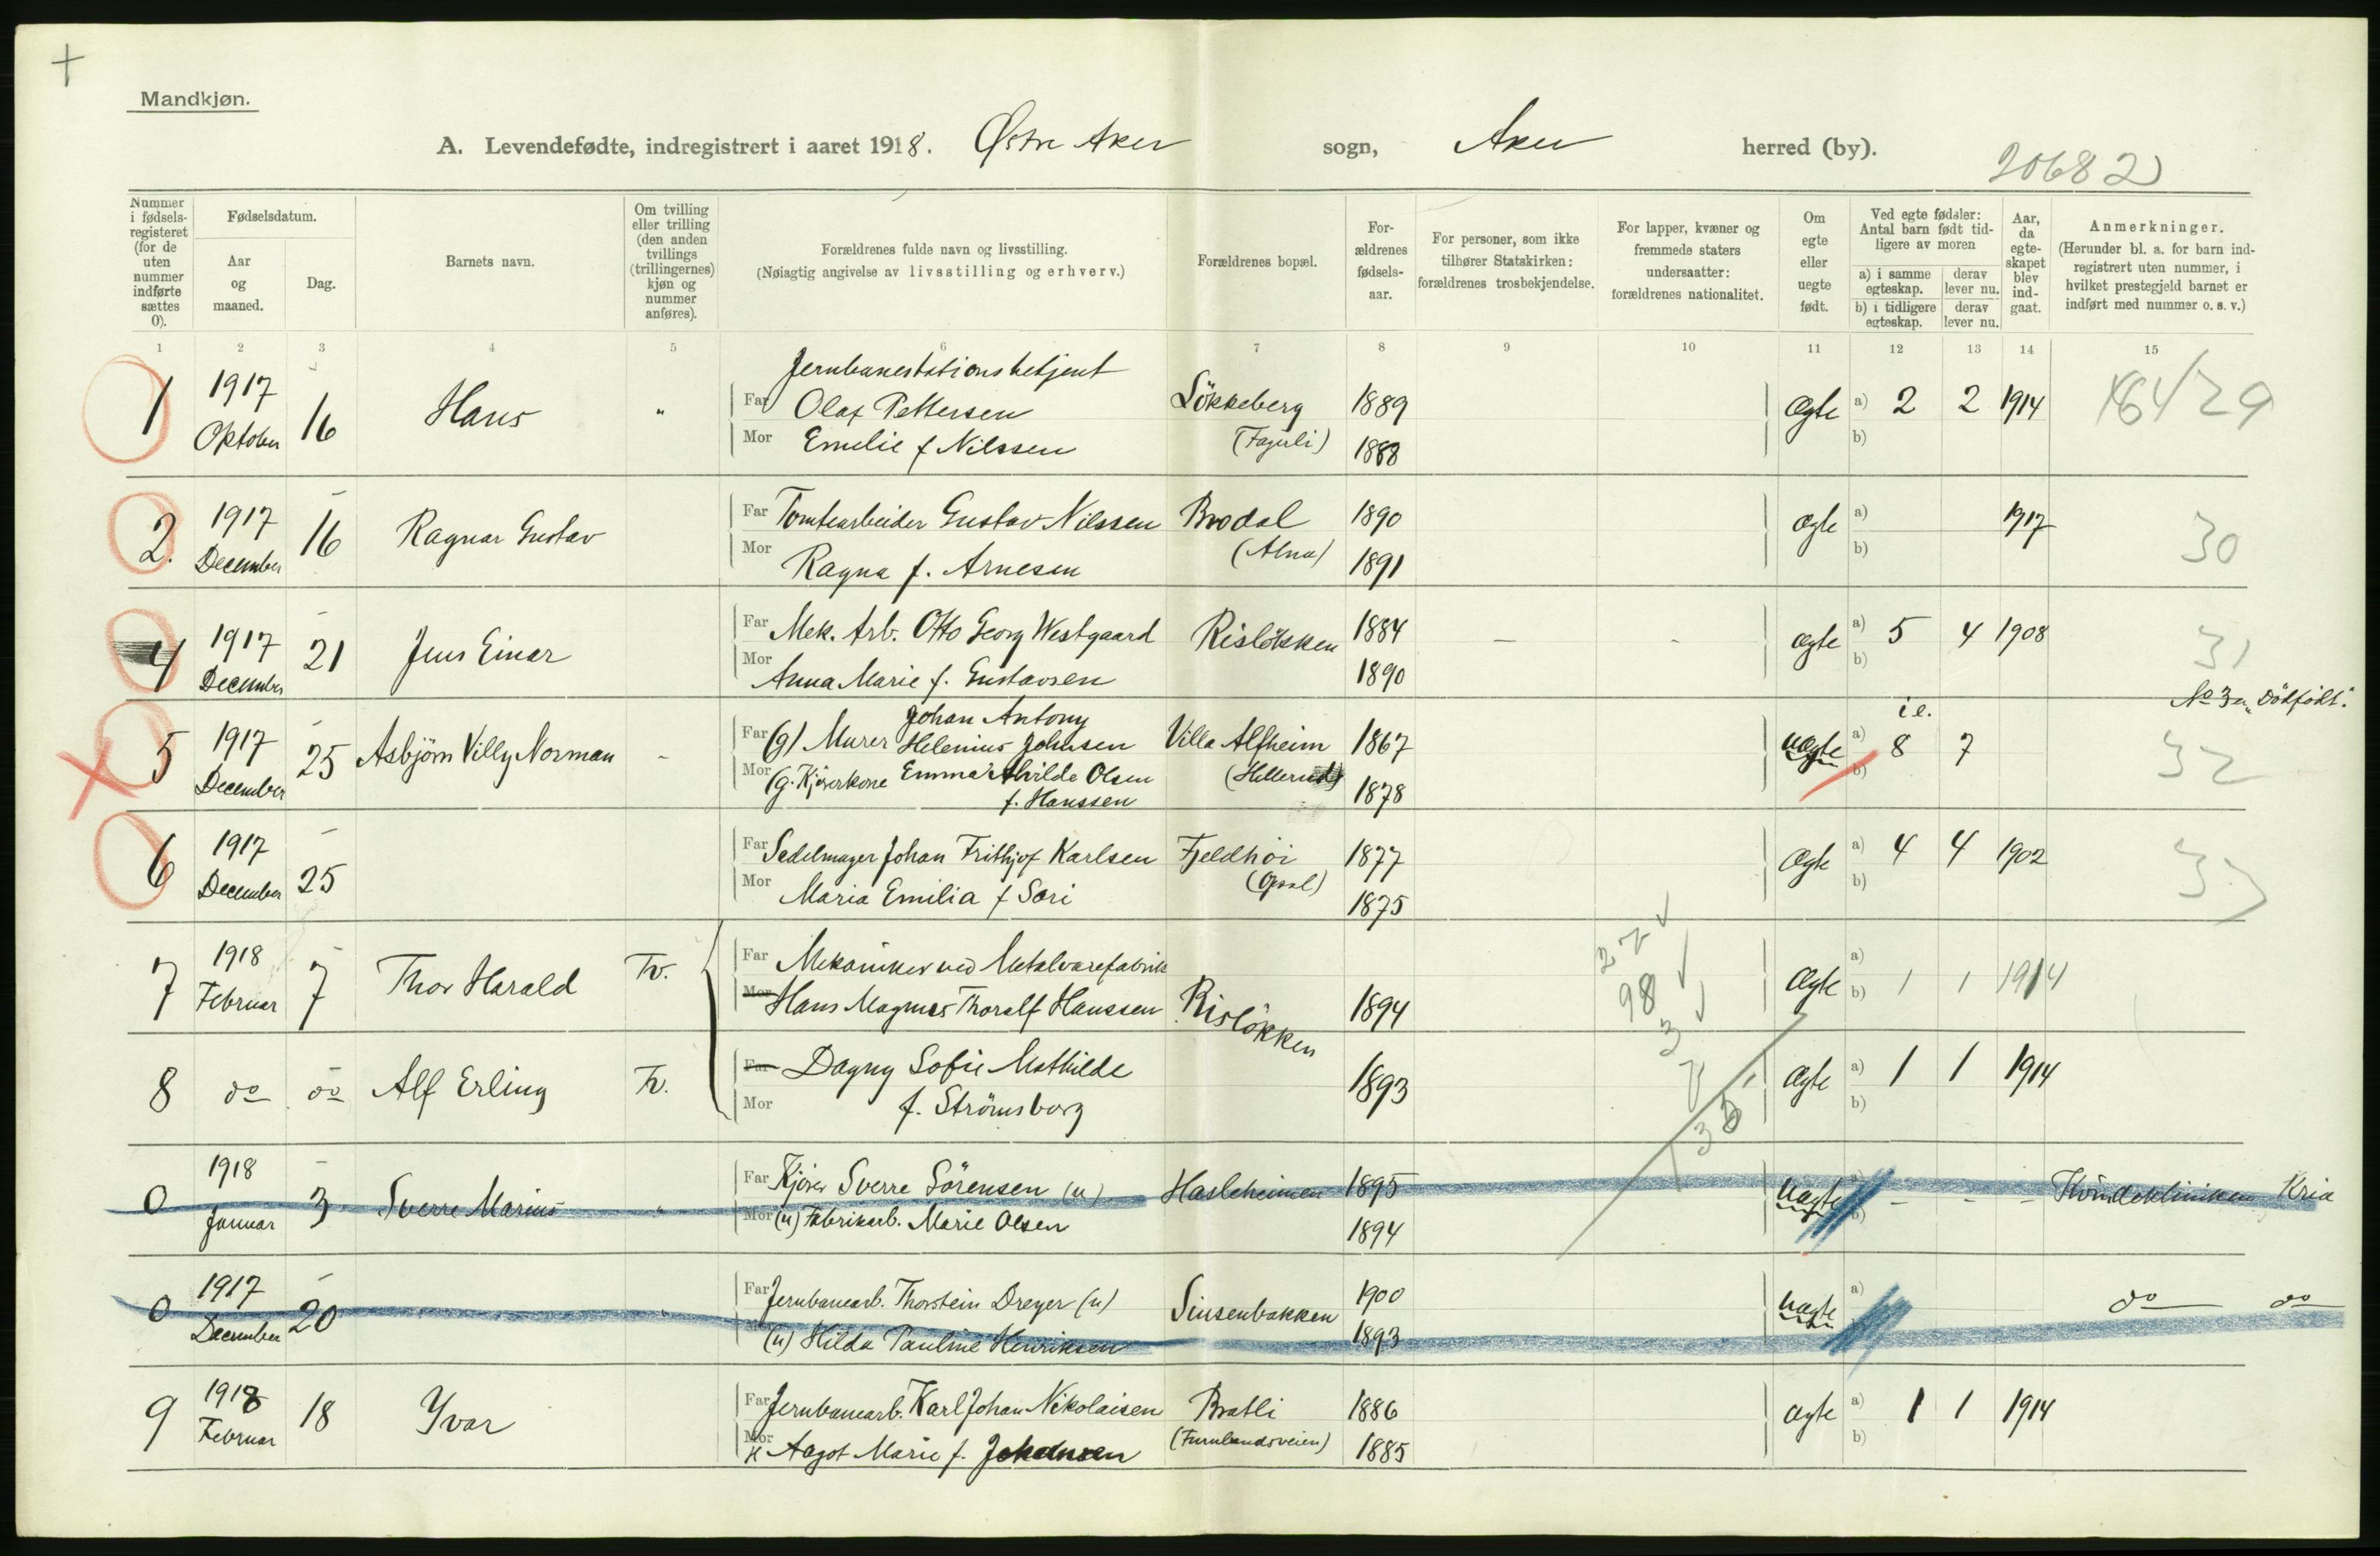 Mandkjøn.
A. Levendefødte, indregistrert i aaret 1918. Østre Aker sogn, Aker herred (by).
20682
Nummer i fødselsregisteret (for de uten nummer indførte sættes 0).
Fødselsdatum.
Aar og maaned.
Dag.
Barnets navn.
Om tvilling eller trilling (den anden tvillings (trillingernes) kjøn og nummer anføres).
Forældrenes fulde navn og livsstilling.
(Nøiagtig angivelse av livsstilling og erhverv.)
Forældrenes bopæl.
Forældrenes fødselsaar.
For personer, som ikke tilhører Statskirken: forældrenes trosbekjendelse.
For lapper, kvæner og fremmede staters undersaatter: forældrenes nationalitet.
Om egte eller uegte født.
Ved egte fødsler: Antal barn født tidligere av moren
a) i samme egteskap. derav lever nu.
b) i tidligere egteskap. derav lever nu.
Aar, da egteskapet blev indgaat.
Anmerkninger.
(Herunder bl. a. for barn indregistrert uten nummer, i hvilket prestegjeld barnet er indført med nummer o. s. v.)
1 2 3 4 5 6 7 8 9 10 11 12 13 14 15
1 1917 Oktober 16 Hans "
Jernbanestationsbetjent
Far Olaf Pettersen Løkkeberg 1889
Mor Emelie f Nilssen (Fagerli) 1888
Ægte a) 2 2 1914
b)
29
2. 1917 December 16 Ragnar Gustav
Far Tomtearbeider Gustav Nilssen Brodal 1890
Mor Ragna f. Arnesen (Alna) 1891
Ægte a) 1917
b)
30
4 1917 December 21 Jens Einar
Far Mek. Arb. Otto Georg Westgaard Risløkken 1884
Mor Anna Marie f. Gustavsen 1890
– -
Ægte a) 5 4 1908
b)
31
No 3 er "Dødfødt".
5 1917 December 25 Asbjørn Villy Norman -
Johan Antony
Far (g) Murer Helenius Johnsen Villa Alfheim 1867
Mor (g. Kjørerkone Emma Alvilde Olsen (Hellerud) 1878
f. Hanssen
Uægte i e.
a) 8 7
b)
32
6 1917 December 25
Far Sadelmager Johan Frithjof Karlsen Fjeldhøi 1877
Mor Maria Emilia f Sari (Opsal) 1875
Ægte a) 4 4 1902
b)
33
7 1918 Februar 7 Thor Harald Tv.
Far Mekaniker ved Metalvarefabrik
Mor Hans Magnus Thoralf Hanssen Risløkken 1894
Ægte a)
b) 1 1 1914
98
3
8 do do Alf Erling Tv.
Far Dagny Sofie Mathilde 1893
Mor f. Strømsborg
Ægte a) 1 1 1914
b)
0 1918 Januar 3 Sverre Marius "
Far Kjører Sverre Sørensen (u) Hasleheimen 1895
Mor (u) Fabrikarb. Marie Olsen 1894
Uægte a) - - -
b)
Kvindeklinikken Kria
0 1917 December 20 "
Far Jernbanearb. Thorstein Dreyer (u) Sinsenbakken 1900
(u) Hilda Pauline Henriksen 1893
Uægte a)
do do
9 1918 Februar 18 Yvar
Far Jernbanearb. Karl Johan Nikolaisen Bratli 1886
Mor Aagot Marie f. Johansen (Furulundsveien) 1885
Ægte a) 1 1 1914
b)